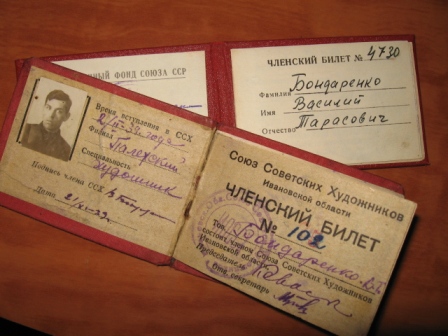 ННЫЙ ФОНД СОЮЗА ССР
ЧЛЕНСКИЙ БИЛЕТ № 4730
Фамилия Бондаренко
Имя Василий
Отчество Тарасович
Время вступления в ССХ
Филиал Палехский
Специальность
художник
Подпись члена ССХ
Дата
Союз Советских Художников
Ивановской области
ЧЛЕНСКИЙ БИЛЕТ
№ 102
Тов. Бондаренко В.Т.
состоит членом Союза Советских Художников
Ивановской области
Председатель
Отв. секретарь